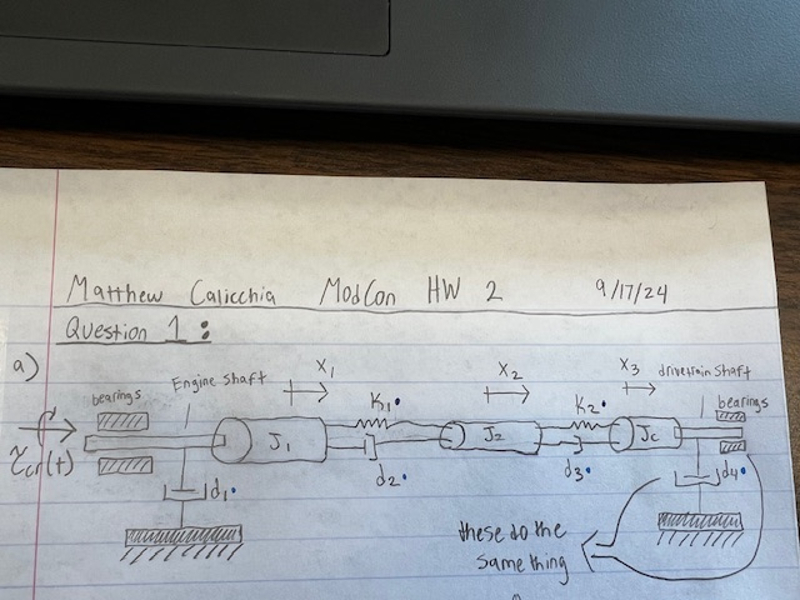 Matthew Calicchia ModCon HW 2 9/17/24
Question 1:
a)
bearings Engine Shaft X₁ X₂ X₃ drivetrain shaft
bearings
K₁ K₂
τcr(t) J₁ J₂ Jc
d₁ d₂ d₃ d₄
these do the
same thing